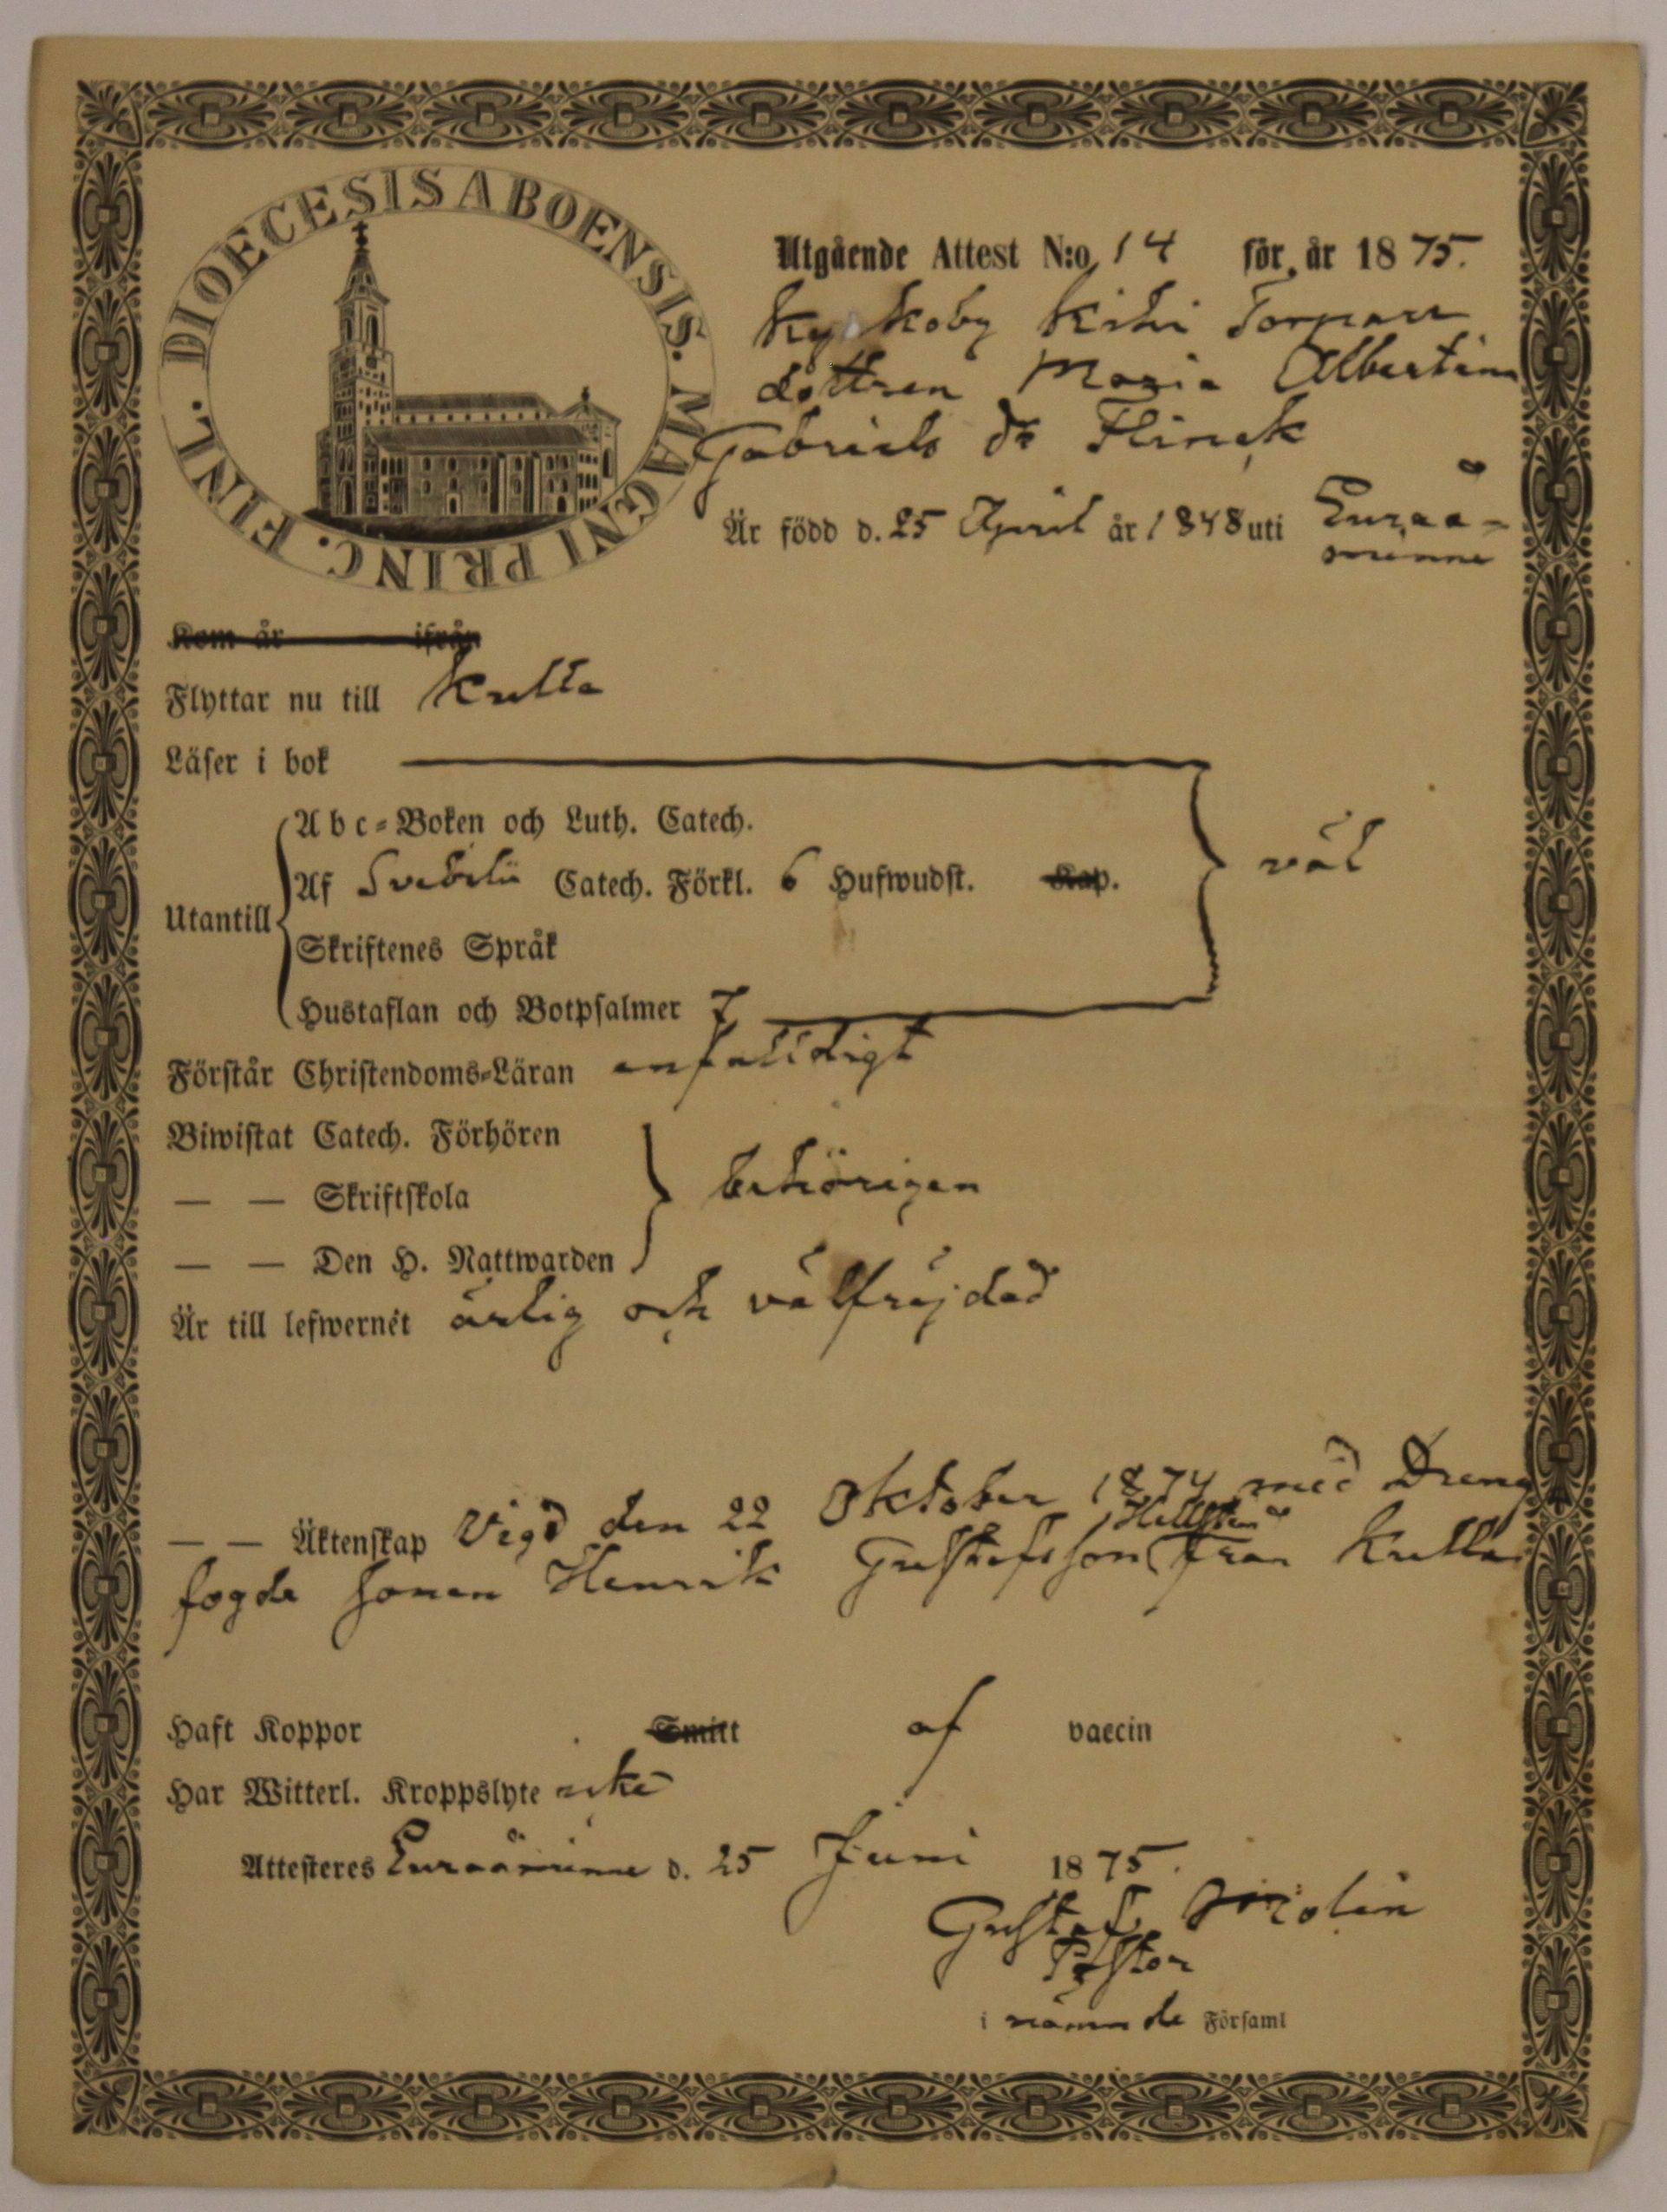 DIOECESIS ABOENSIS. MAGNI PRINC. FINL.
Utgående Attest N:o 14 för år 1875.
Kyrkoby Kihi Torpare
dottren Maria Albertina
Gabriels dr Flinck
Är född d. 25 April år 1848 uti Euraå-
minne
Kom år ifrån
Flyttar nu till Kulla
Läser i bok
Abc-Boken och Luth. Catech.
Af Svebilii Catech. Förkl. 6 Hufwudst. Kap. väl
Utantill
Skriftenes Språk
Hustaflan och Botpsalmer 7
Förstår Christendoms-Läran enfaldigt
Biwistat Catech. Förhören
— — Skriftskola behörigen
— — Den H. Nattwarden
Är till lefwernet ärlig och välfräjdad
— — Äktenskap Vigd den 22 Oktober 1874 med Dreng
Hellsten
fogde Johan Henrik Gustafsson från Kulla
Haft Koppor Smitt af vaccin
Har Witterl. Kroppslyte icke
Attesteres Euraåminne d. 25 Juni 1875.
Gustaf Molin
Pastor
i nämnde Församl